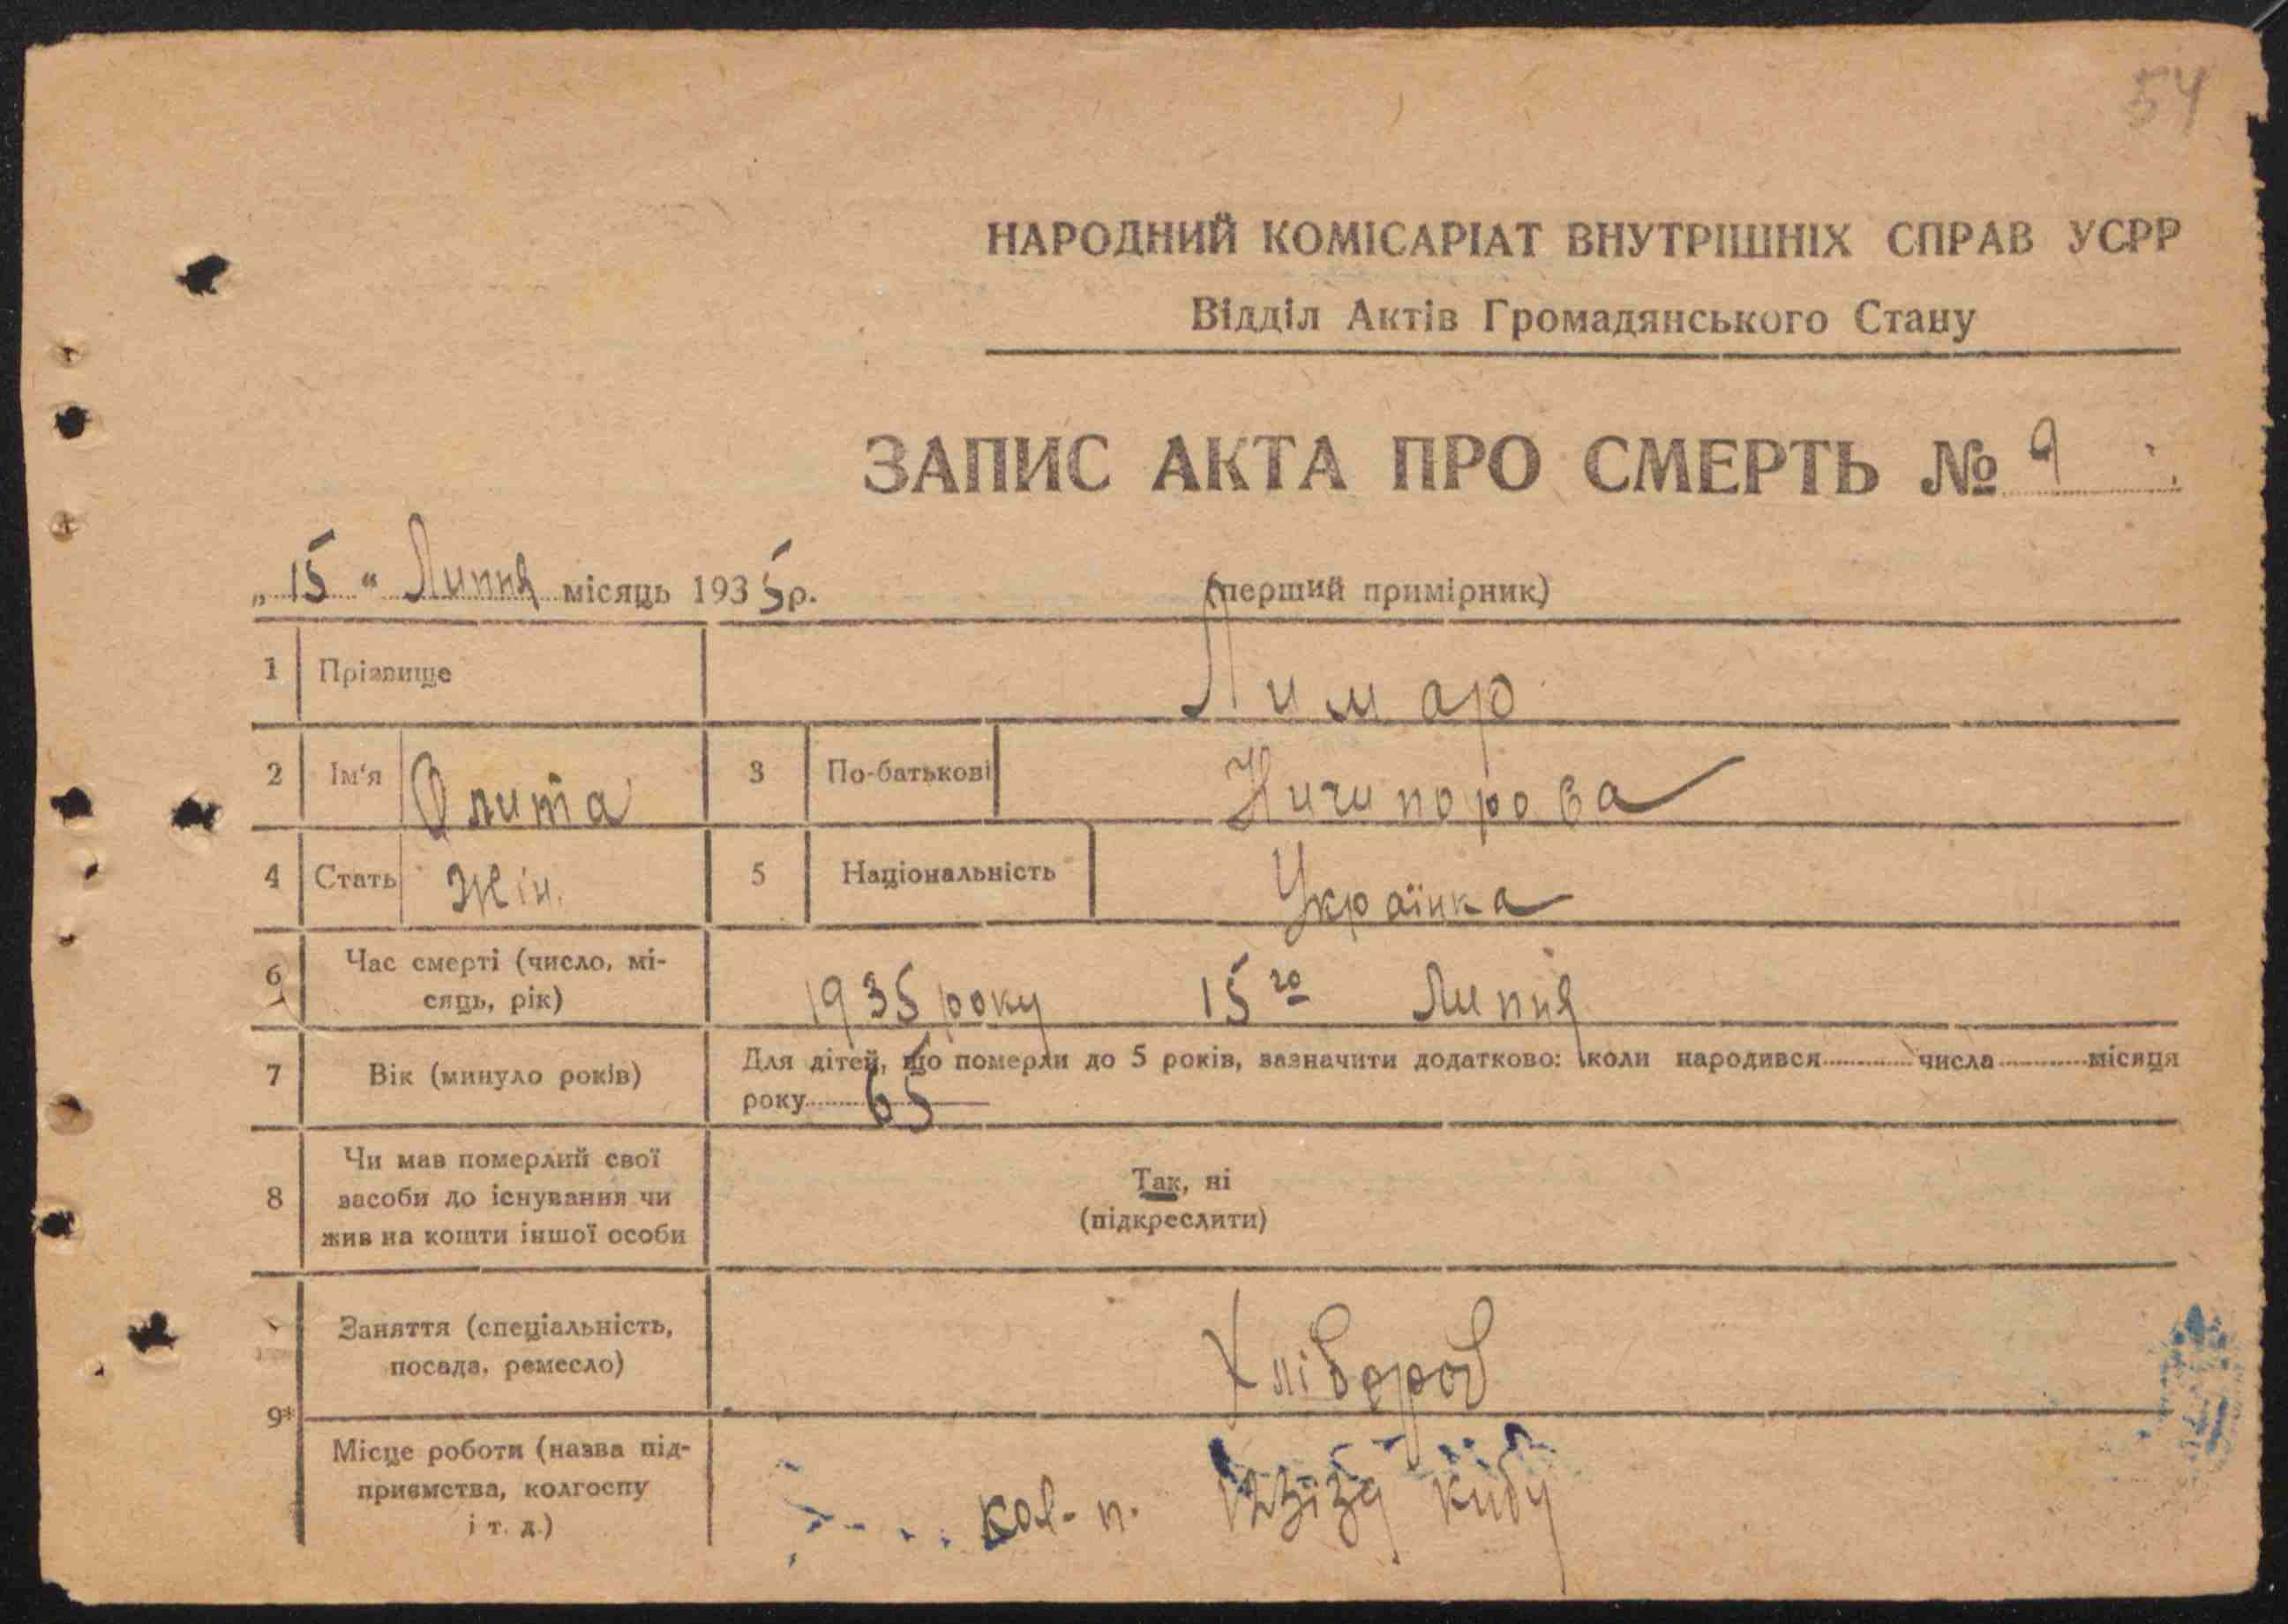 54
НАРОДНИЙ КОМІСАРІАТ ВНУТРІШНІХ СПРАВ УСРР
Відділ Актів Громадянського Стану
ЗАПИС АКТА ПРО СМЕРТЬ № 9
„15“ Липня місяць 1935 р.
(перший примірник)
1 Прізвище Лимар
2 Ім'я Олита 3 По-батькові Ничипорова
4 Стать Жін. 5 Національність Українка
6 Час смерті (число, мі-
сяць, рік) 1935 року 15го Липня
7 Вік (минуло років) Для дітей, що померли до 5 років, зазначити додатково: коли народився числа місяця
року 65
8 Чи мав померлий свої
засоби до існування чи
жив на кошти іншої особи
Так, ні
(підкреслити)
Заняття (спеціальність,
посада, ремесло) Хлібороб
9*
Місце роботи (назва під-
приємства, колгоспу
і т. д.) кол-п.